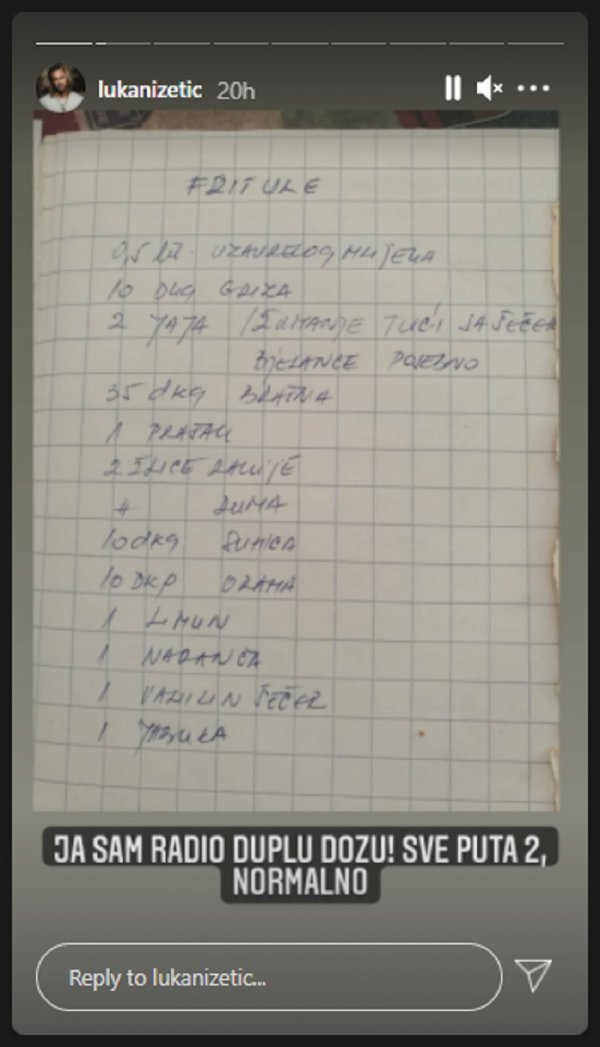 lukanizetic 20h
FRITULE
0,5 lit. UZAVRELOG MLIJEKA
10 DKG GRIZA
2 JAJA / ŽUMANJE TUĆI SA ŠEĆER
BJELANCE POSEBNO
35 dkg BRAŠNA
1 PRAŠAK
2 ŽLICE RAKIJE
4 RUMA
10 dkg
10 DKP ORAHA
1 LIMUN
1 NARANČA
1 VANILIN ŠEĆER
1 JABUKA
JA SAM RADIO DUPLU DOZU! SVE PUTA 2,
NORMALNO
Reply to lukanizetic...